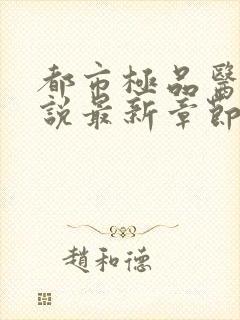 都市極品醫
說最新章節
趙和德